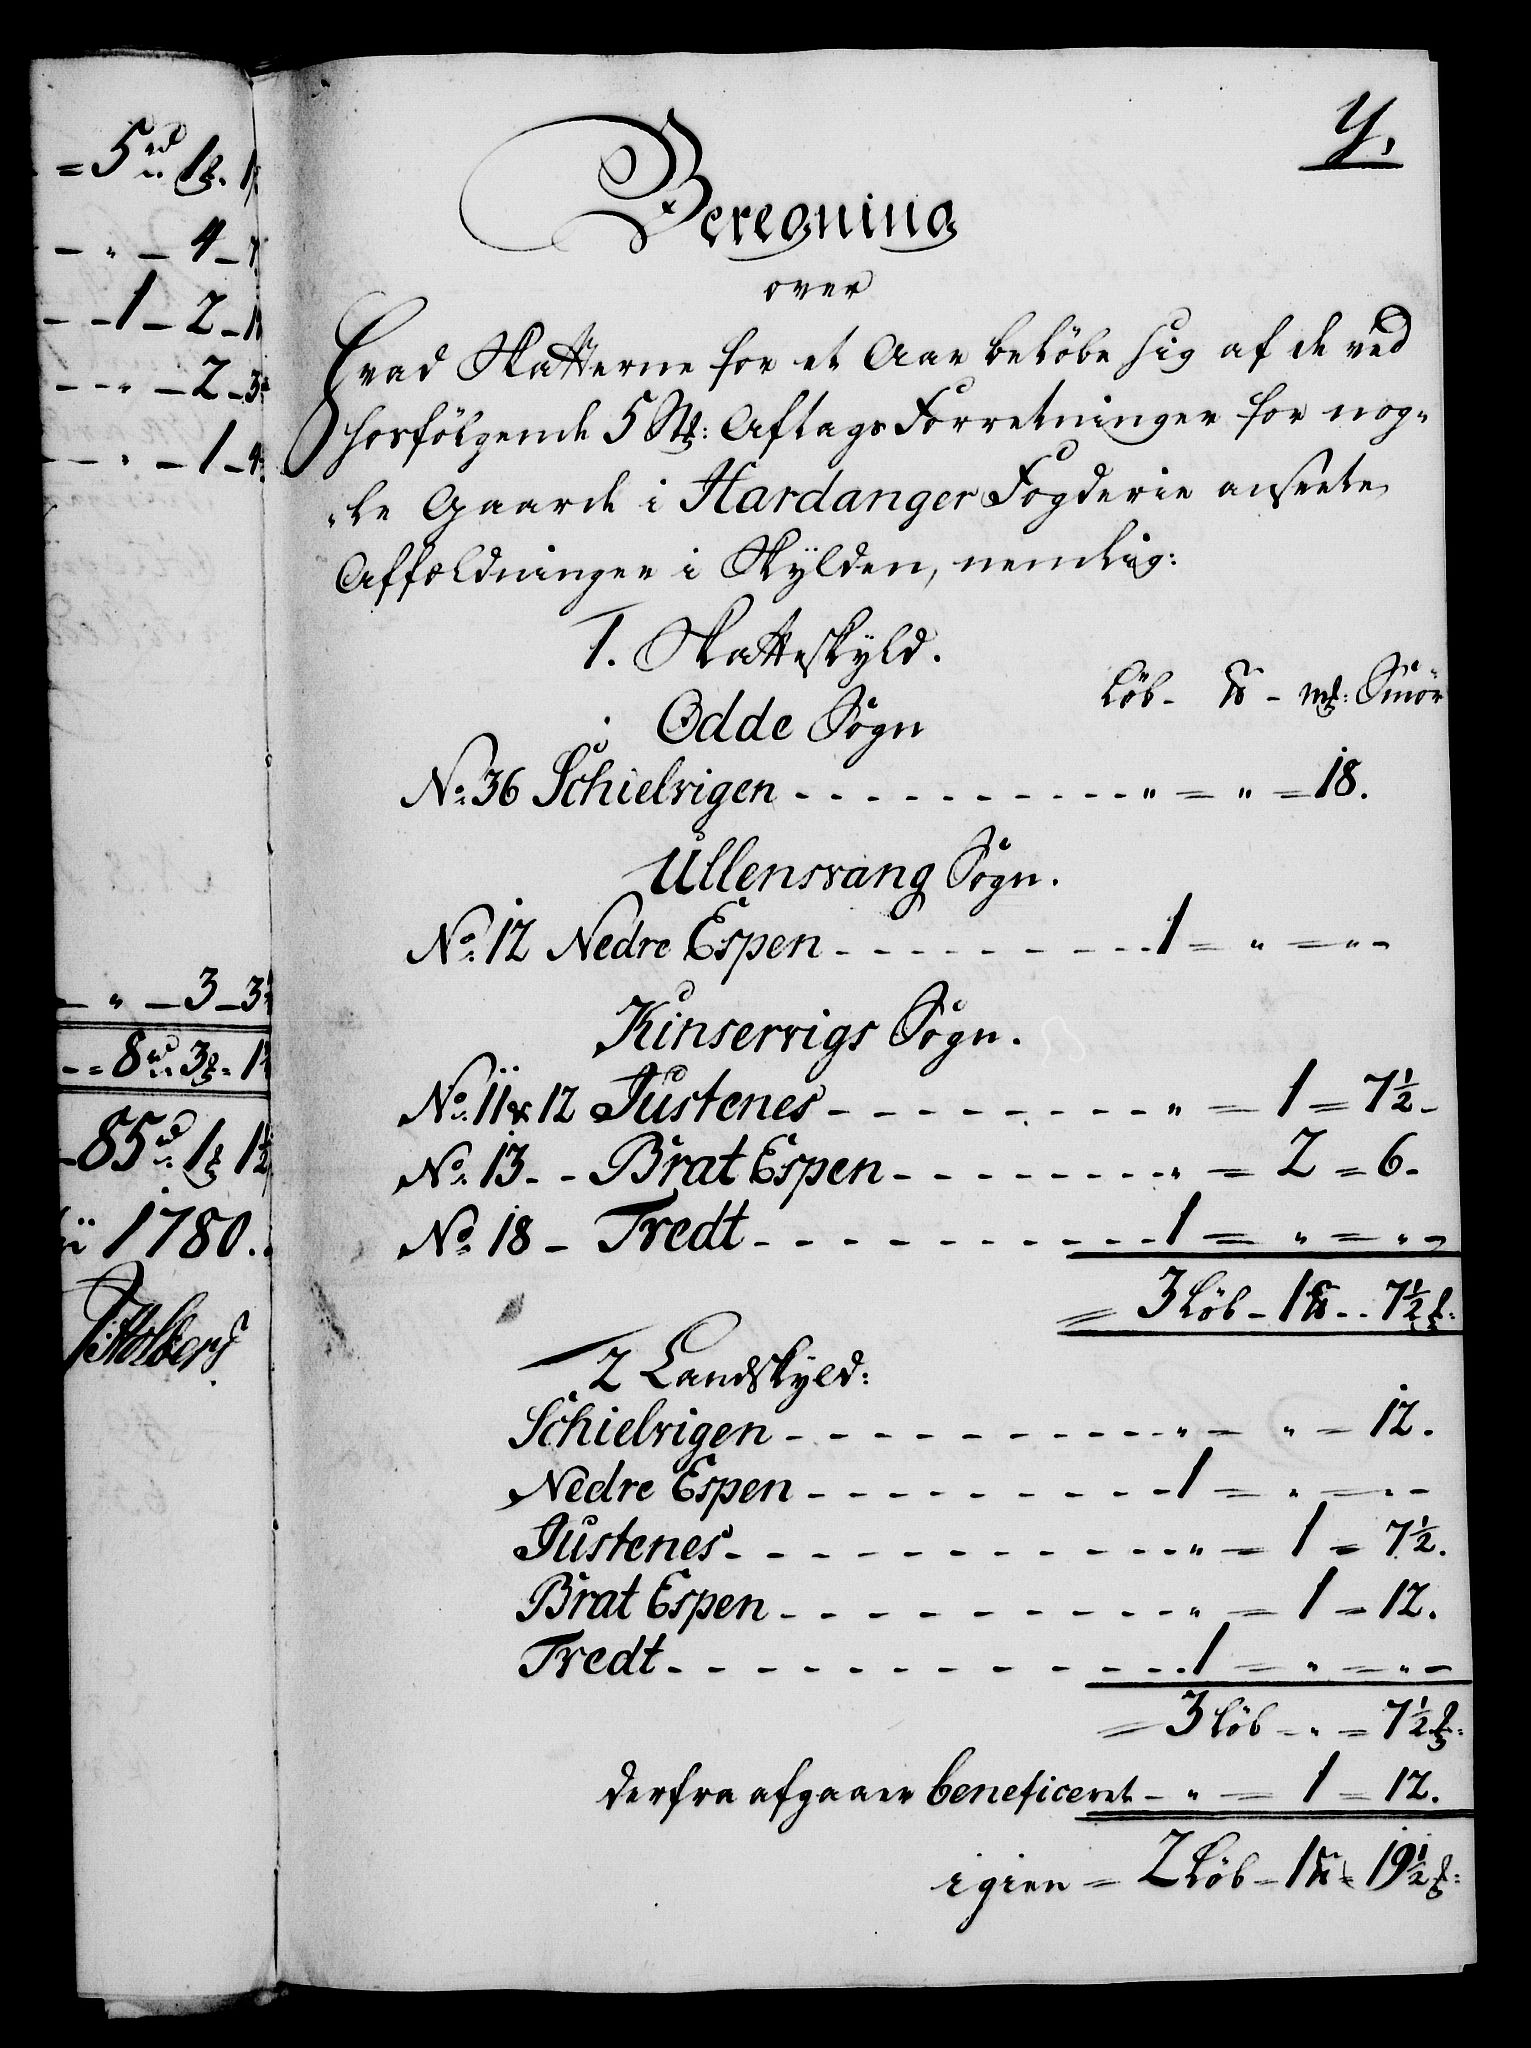 = 5 rd 1 ß. 1
- " - 4 -
- - 1 - 2 - 1
- - " - 2 - 3
- - " - 1 - 4
- " - 3 - 3
- - = 8 rd 3 ß - 1
- 85 rd 1 ß 1½
1780.
Y.
Beregning
over
Hvad Skatterne for et Aar beløbe sig af de ved
hosfölgende 5 St: Aftags Forretninger for nog-
-le Gaarde i Hardanger Fogderie ansette
Affældninger i Skÿlden, nemlig:
1. Skatteskÿld.
Löb - ℔ - m℔: Smör
Odde Sogn
No: 36 Schielvigen - - - - - - - - - - " = " = 18.
Ullensvang Sogn.
No: 12 Nedre Espen - - - - - - - - - 1 = " = " -
Kinservigs Sogn.
No: 11 & 12 Justenes - - - - - - - - " = 1 = 7½ -
No: 13 - - Brat Espen - - - - - - - - " = 2 = 6 -
No: 18 - Tredt - - - - - - - - - - - 1 = " = " -
= 3 Löb - 1 ℔ - - 7½ ℔:
2 Landskÿld:
Schielvigen - - - - - - - - - - - " = " = 12.
Nedre Espen - - - - - - - - - - 1 = " = " -
Justenes - - - - - - - - - - - - " = 1 = 7½.
Brat Espen - - - - - - - - - - " = 1 = 12.
Tredt - - - - - - - - - - - - - 1 = " = " -
= 3 Löb - " = 7½ ℔:
derfra afgaaer beneficeret - " = 1 = 12.
igien = 2 Löb - 1 ℔ = 19½ ℔: